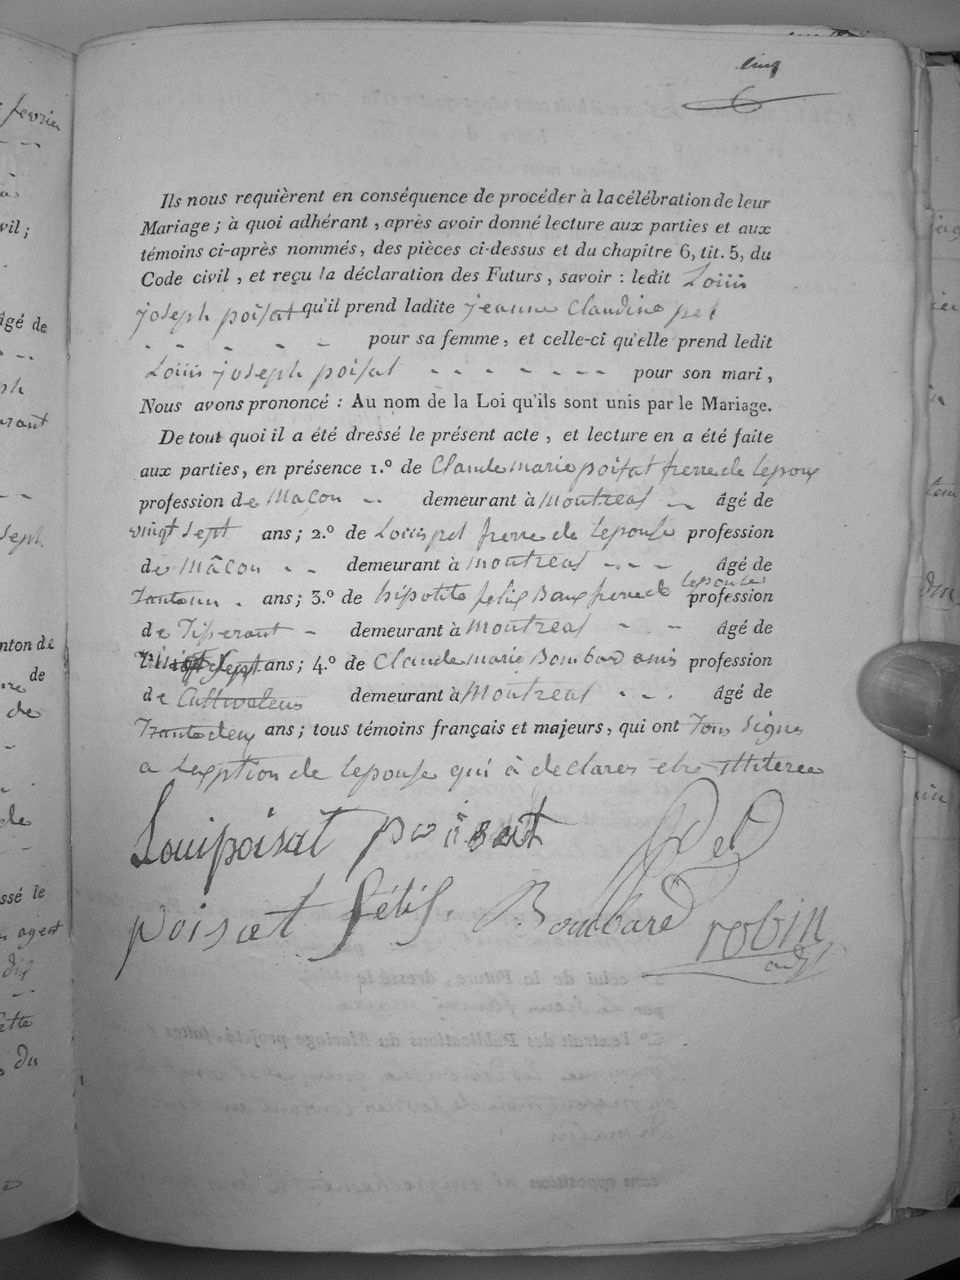 cinq
6
Ils nous requièrent en conséquence de procéder à la célébration de leur
Mariage ; à quoi adhérant , après avoir donné lecture aux parties et aux
témoins ci-après nommés, des pièces ci-dessus et du chapitre 6, tit. 5, du
Code civil , et reçu la déclaration des Futurs , savoir : ledit Louis
joseph poisat qu'il prend ladite jeanne Claudine pel
pour sa femme, et celle-ci qu'elle prend ledit
Louis joseph poisat pour son mari ,
Nous avons prononcé : Au nom de la Loi qu'ils sont unis par le Mariage.
De tout quoi il a été dressé le présent acte , et lecture en a été faite
aux parties, en présence 1.º de Claude marie poisat frere de lepoux
profession de Maçon demeurant à Montreal âgé de
vingt sept ans ; 2.º de Louis pel frere de lepouse profession
de Mâcon demeurant à montreal âgé de
ans ; 3.º de hipolite felix Baux frere de lepouse profession
de Tiserant demeurant à Montreal âgé de
Vingt Sept ans ; 4.º de Claude marie Bombar amis profession
de Cultivateur demeurant à Montreal âgé de
Trante deux ans ; tous témoins français et majeurs, qui ont Tous Signe
a lexption de lepouse qui à declarer etre illiteree
Loui poisat poisat Pel
poisat félis Bombard robin
février
vil ;
âgé de
ph
erant
joseph
nton de
de
de
de
ssé le
agent
dix
cette
du